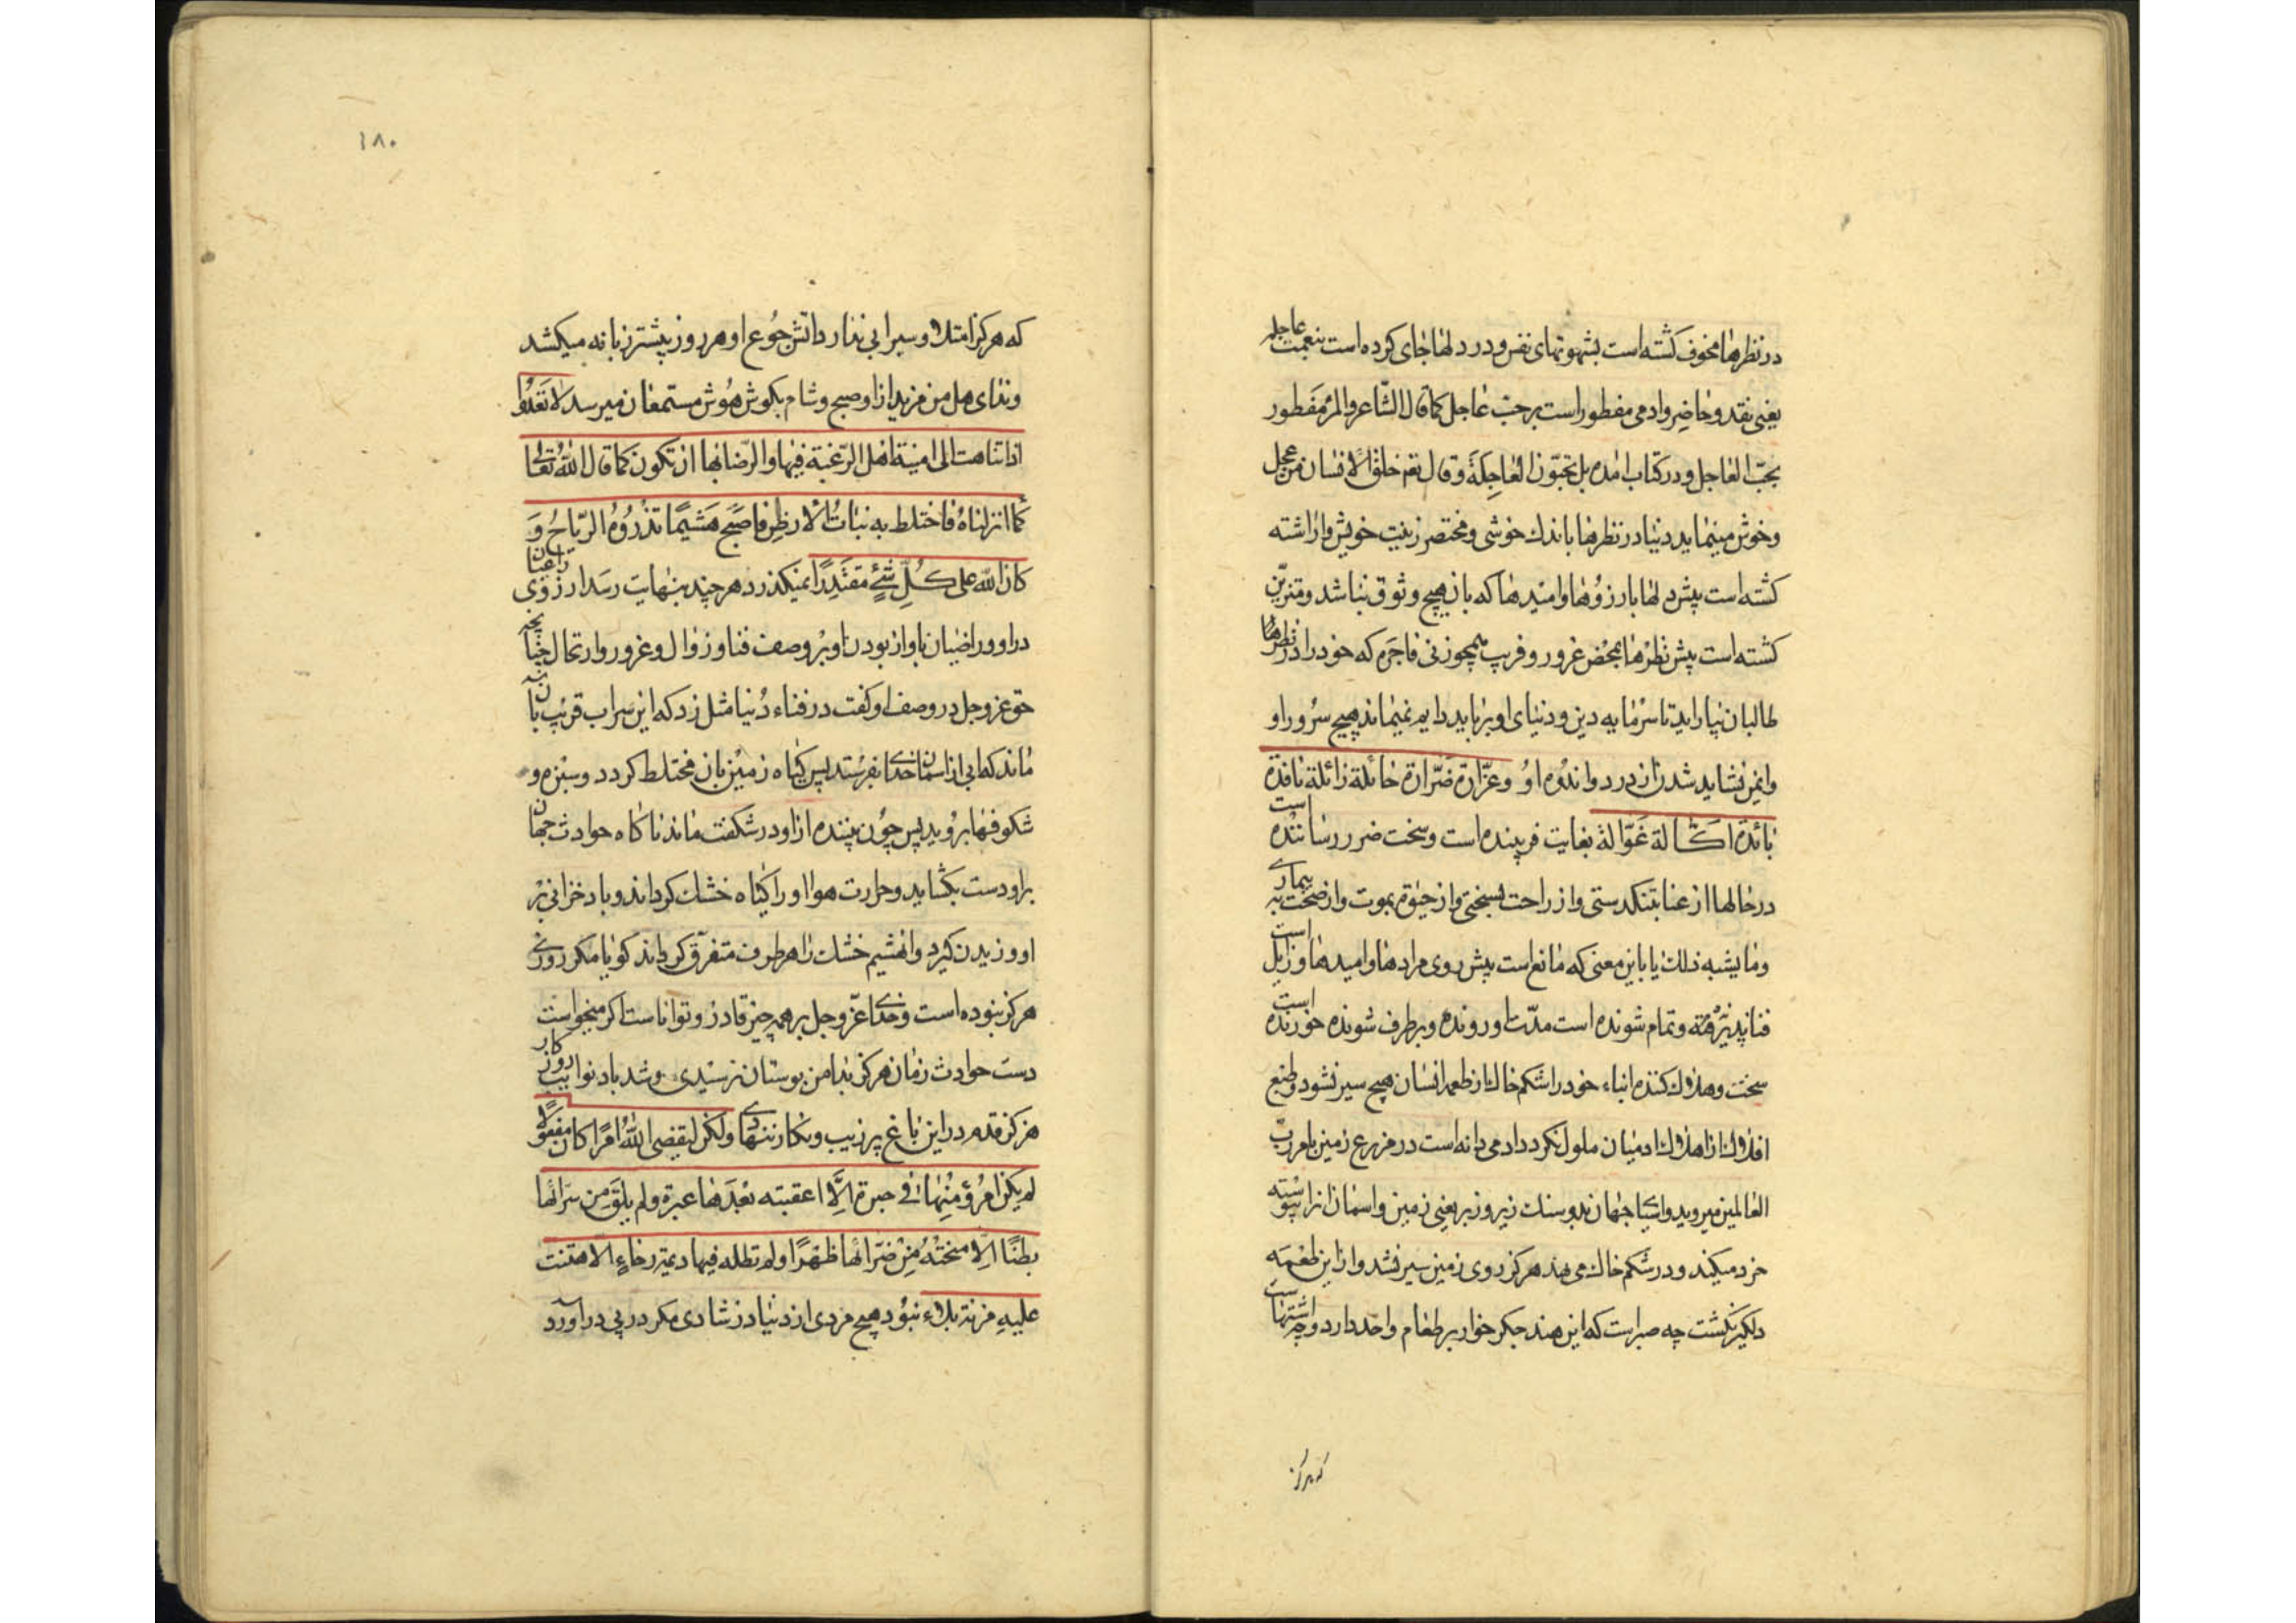 در نظرها مخوف کشته است بشهوتهای نفس و در دلها جای کرده است بنعمت عاجله
یعنی نقد و حاضر وادمی مفطور است بر حبّ عاجل کما قال الشّاعر والمرٔ مفطور
بحبّ العاجل و در کتاب امده بل تحبّون العاجلة و قال نعم خلق الانسان من عجل
و خوش مینماید دنیا در نظرها باندك خوشی و مختصر زینت خویش واراشته
کشته است پیش دلها بارزوها وامیدها که بان هیچ وثوق نباشد ومتزیّن
کشته است پیش نظرها بمحض غرور و فریب همچو زنی فاجره که خود را در نظرها
طالبان بیاراید تا سرمایه دین و دنیای او برباید دایم نمیماند هیچ سرور او
وایمن نشاید شدن از درد و اندوه او وغرّارة ضرّارة حائلة زائلة نافدة
بائدة اکّالة غوّالة بغایت فریبنده است وسخت ضرر رساننده است
در حالها از غنا بتنکدستی واز راحت بسختی واز حیوة بموت واز صحّت به بیماری
وما یشبه ذلك یا باین معنی که مانع است پیش روی مرادها وامیدها و زایل است
فنا پذیرفته وتمام شونده است مدّت او رونده و برطرف شونده خورنده است
سخت وهلاك کننده ابناء خود را شکم خاك از طعمه انسان هیچ سیر نشود وطبع
افلاك از اهلاك ادمیان ملول نکردد ادمی دانه است در مزرع زمین بامر ربّ
العالمین میروید واسیا جهان بدو سنك زیر و زبر یعنی زمین و اسمان انرا پیوسته
خرد میکند و در شکم خاك می نهد هرکز روی زمین سیر نشد و از این طعمه
دلکیر نکشت چه صبر است که این هند جکر خوار بر طعام واحد دارد و چه اشتهاست
که هرکز
۱۸۰
که هرکز امتلا و سیرابی ندارد اتش جوع او هر روز پیشتر زبانه میکشد
وندای هل من مزید از او صبح و شام بکوش هوش مستمعان میرسد لا تعدوا
اذا تناهت الی امنیة اهل الرّغبة فیها والرّضا بها ان تکون کما قال اللّه تعالی
کما انزلناه فاختلط به نبات الارض فاصبح هشیمًا تذروه الریّاح و
کان اللّه علی کلّ شئ مقتدرًا نمیکذرد هر چند بنهایت رسد ارزوی راغبان
در او و راضیان باو از بودن او بر وصف فنا و زوال و غرور وارتحال چنانچه
حق عز و جل در وصف او کفت در فناء دنیا مثل زد که این سراب قریب بان
ماند که ابی از اسمان خدای بفرستد پس کیاه زمین بان مختلط کردد وسبزه و
شکوفها بروید پس چون بیننده از او در شکفت ماند ناکاه حوادث جهان
بر او دست بکشاید و حرارت هوا او را کیاه خشك کرداند و باد خزانی بر
او وزیدن کیرد وانهشیم خشك را هر طرف متفرّق کرداند کویا مکر روزی
هرکز نبوده است و خدای عزّ و جل بر همه چیز قادر و تواناست اکر میخواست
دست حوادث زمان هرکز بدامن بوستان نرسیدی وشد باد نوایب روزکار
هرکز قدم در این باغ پر زیب ونکار ننهادی ولکن لیقضی اللّه امرًا کان مفعولًا
لم یکن امرؤ منها فی حبرة الّا اعقبته بعدها عبرة ولم یلق من سرّائها
بطنًا الّا منحته من ضرّائها ظهرًا ولم تطله فیها دیمة رخاءٍ الّا هتنت
علیه مزنة بلاء نبود هیچ مردی از دنیا در شادی مکر در پی دراورد